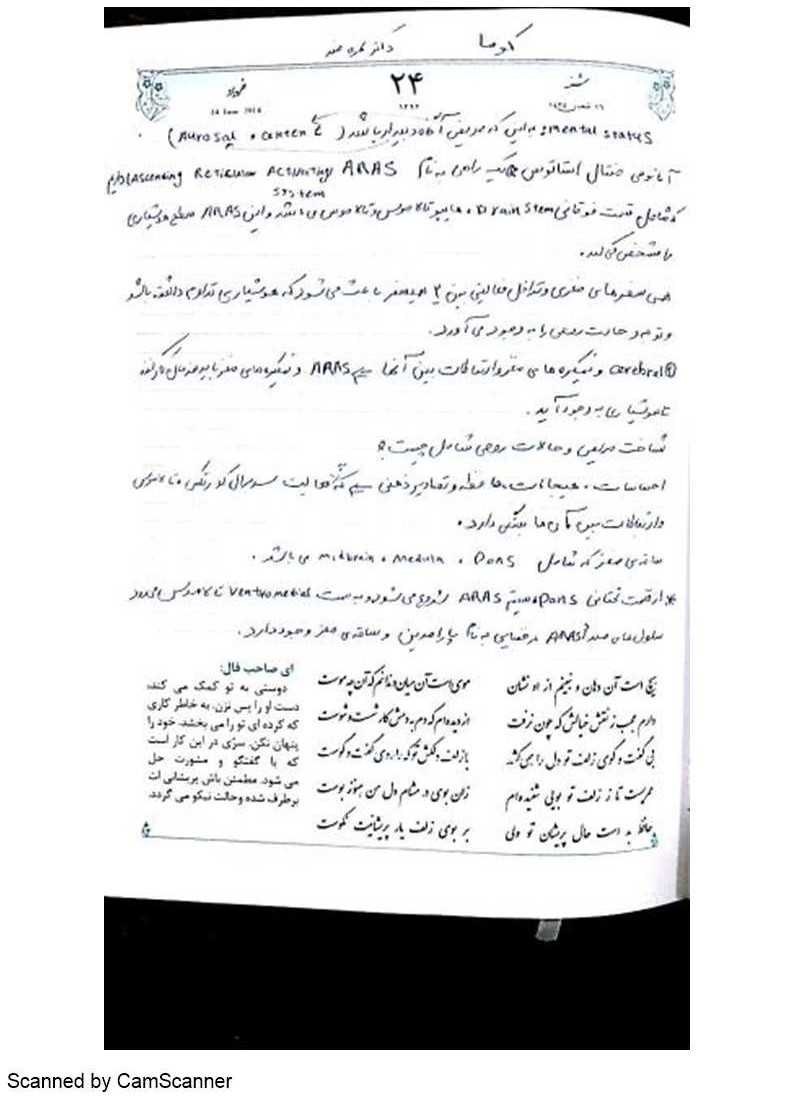 کوما دکتر بهره مند
شنبه ۲۴ خرداد
۱۳۹۳
14 June 2014
Mental status: به این که مریض آگاه و بیدار باشد (Aurosal , centen
آناتومی منتال استاتوس به نام ARAS (Ascending Reticular Activating
system
که شامل قسمت فوقانی Brain stem ، هیپوتالاموس و تالاموس می باشد و این ARAS سطح هوشیاری
را مشخص می کند.
نیمسفرهای مغزی و تداخل فعالیتی بین ۲ نیمسفر باعث می شود که هوشیاری تداوم داشته باشد
و توجه و حالت روحی را به وجود می آورد.
cerebral و نیمکره های مغز و ارتباطات بین آنها ARAS و نیمکره های مغز باید
تا هوشیاری به وجود آید.
شناخت مریض و حالات روحی شامل چیست؟
احساسات ، هیجانات ، حافظه و تصاویر ذهنی که فعالیت کورتکس ، تالاموس
و ارتباطات بین آن ها بستگی دارد.
ساقه ی مغز که شامل Midbrain ، Medula ، Pons می باشد.
* از قسمت تحتانی Pons سیستم ARAS شروع می شود و به سمت Ventromedial تالاموس می رود
سلول های ARAS در فضایی به نام پارامدین و ساقه ی مغز وجود دارد.
هیچ است آن دهان و نبینم از او نشان موی است آن میان و ندانم که آن چه موست
دارم عجب ز نقش خیالش که چون نرفت از دیده ام که دم به دمش کار شست و شوست
بی گفت و گوی زلف تو دل را همی کشد با زلف دلکش تو که را روی گفت و گوست
عمریست تا ز زلف تو بویی شنیده ام زان بوی در مشام دل من هنوز بوست
حافظ بد است حال پریشان تو ولی بر بوی زلف یار پریشانیت نکوست
ای صاحب فال:
دوستی به تو کمک می کند،
دست او را پس نزن. به خاطر کاری
که کرده ای تو را می بخشد. خود را
پنهان نکن. سرّی در این کار است
که با گفتگو و مشورت حل
می شود. مطمئن باش پریشانی ات
برطرف شده و حالت نیکو می گردد.
Scanned by CamScanner